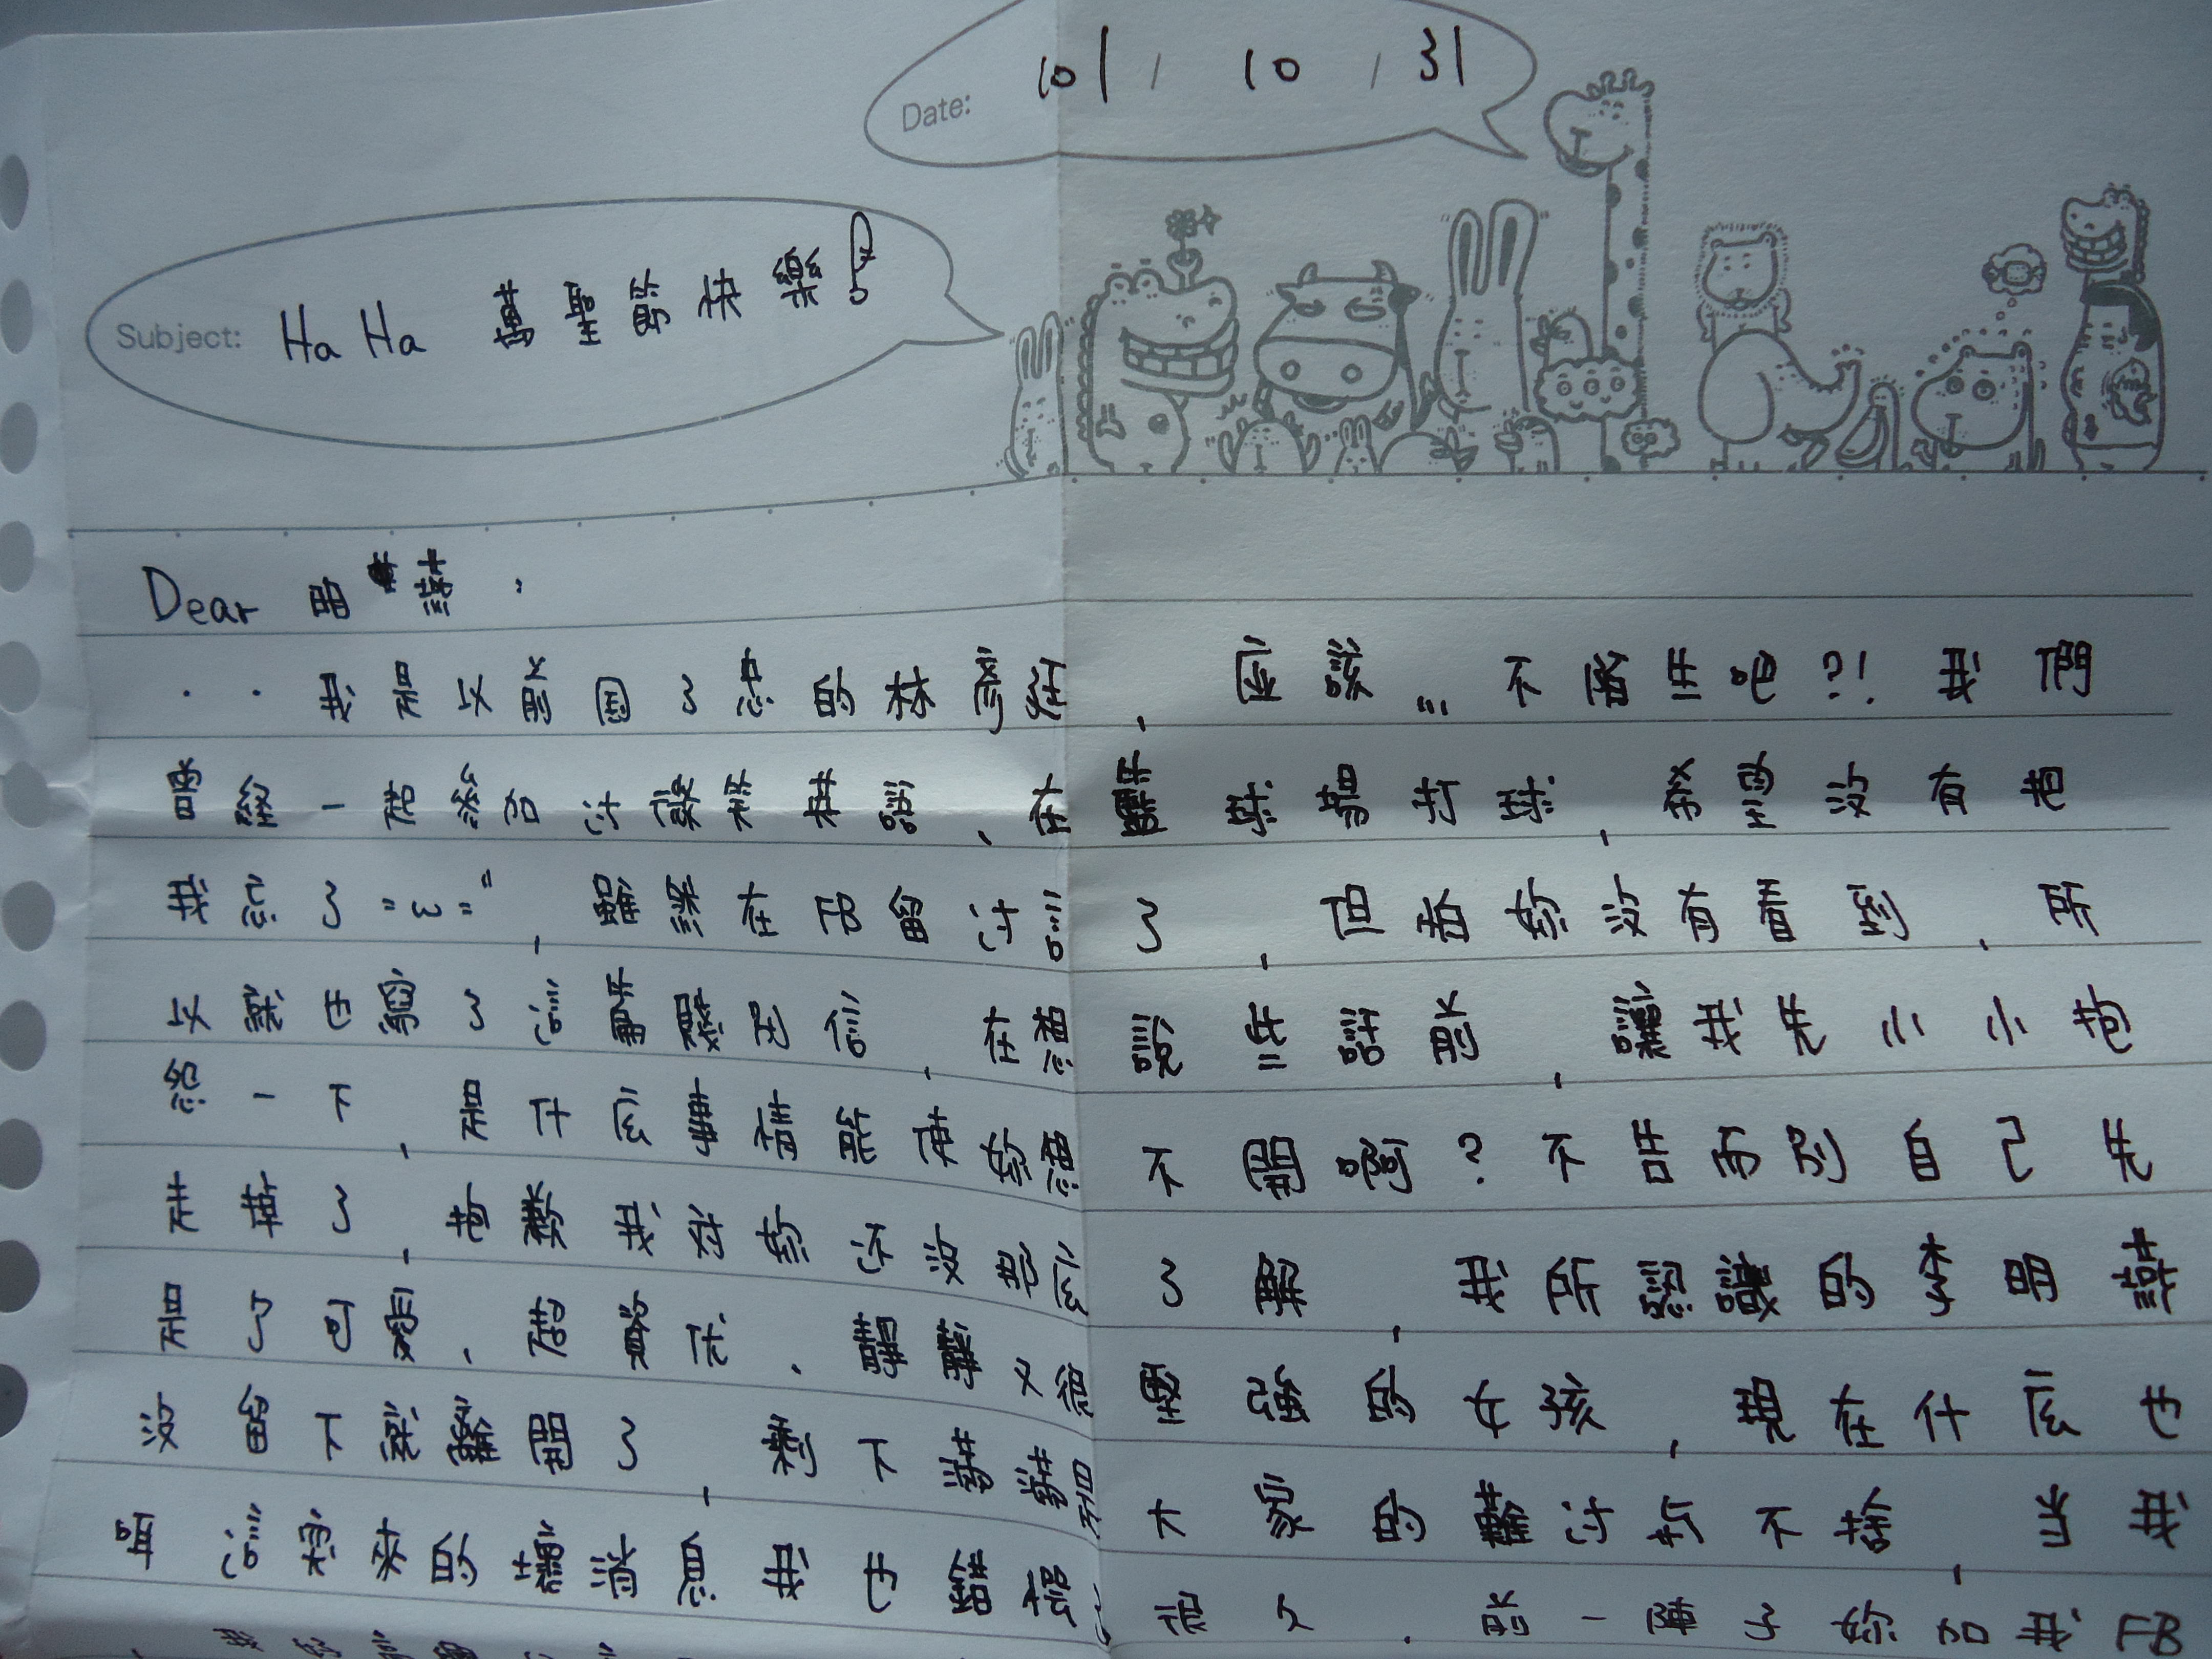 Date: 101 / 10 / 31
Subject: Ha Ha 萬聖節快樂
Dear 明燕,
我是以前國了忠的林彥廷,應該...不陌生吧?!我們
曾經一起參加过億來棋證、在羅球場打球,希望沒有把
我忘了"3"",雖然在FB留过言了,但怕妳沒有看到,所
以就也寫了這篇殘尼信,在想說些話前,讓我先小小抱
怨一下,是什広事情能使妳想不開啊?不告而別自己先
走華了,抱歉我对妳还沒那広了解,我所認識的李明燕
是了可愛、活潑、又很堅強的女孩,現在什広也
沒留下就離開了,剩下滿滿和大家的難过於不捨,当我
耳這突來的壞消息我也錯愕很久,前一陣子妳加我FB